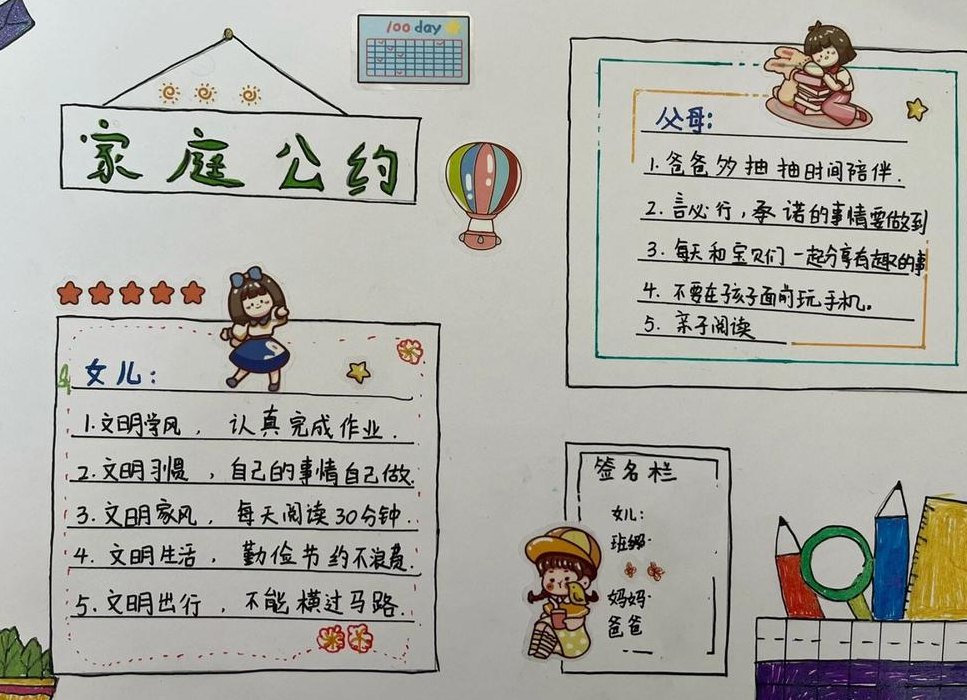 100 day
家庭公约
父母:
1. 爸爸多抽抽时间陪伴.
2. 言必行,承诺的事情要做到
3. 每天和宝贝们一起分享有趣的事
4. 不要在孩子面前玩手机。
5. 亲子阅读
女儿:
1. 文明学风, 认真完成作业.
2. 文明习惯, 自己的事情自己做.
3. 文明家风, 每天阅读30分钟.
4. 文明生活, 勤俭节约不浪费.
5. 文明出行, 不能横过马路.
签名栏
女儿:
班级:
妈妈:
爸爸